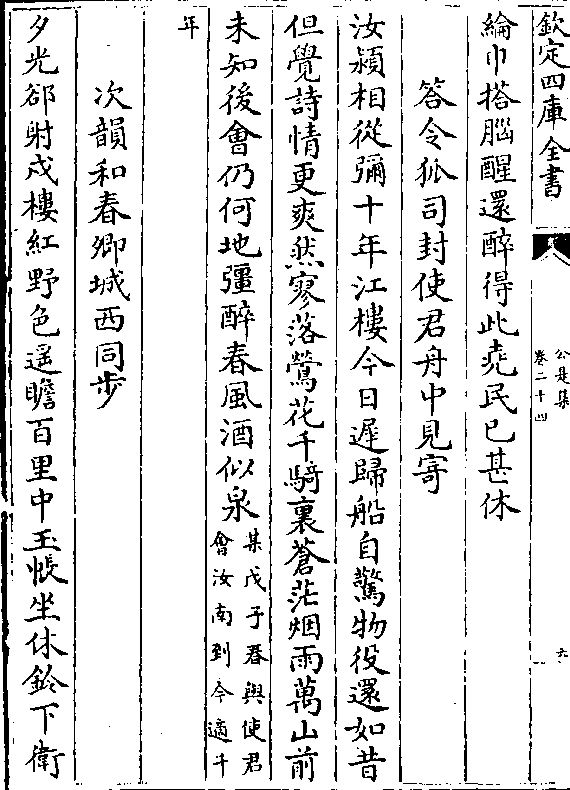 欽定四庫全書
公是集
卷二十四
六
綸巾搭腦醒還醉得此堯民已甚休
答令狐司封使君舟中見寄
汝潁相從彌十年江樓今日遲歸船自驚物役還如昔
但覺詩情更爽然寥落鶯花千騎裏蒼茫烟雨萬山前
未知後會仍何地彊醉春風酒似泉某戊子春與使君
會汝南到今適十
年
次韻和春卿城西同步
夕光郤射戍樓紅野色遥瞻百里中玉帳坐休鈴下衛